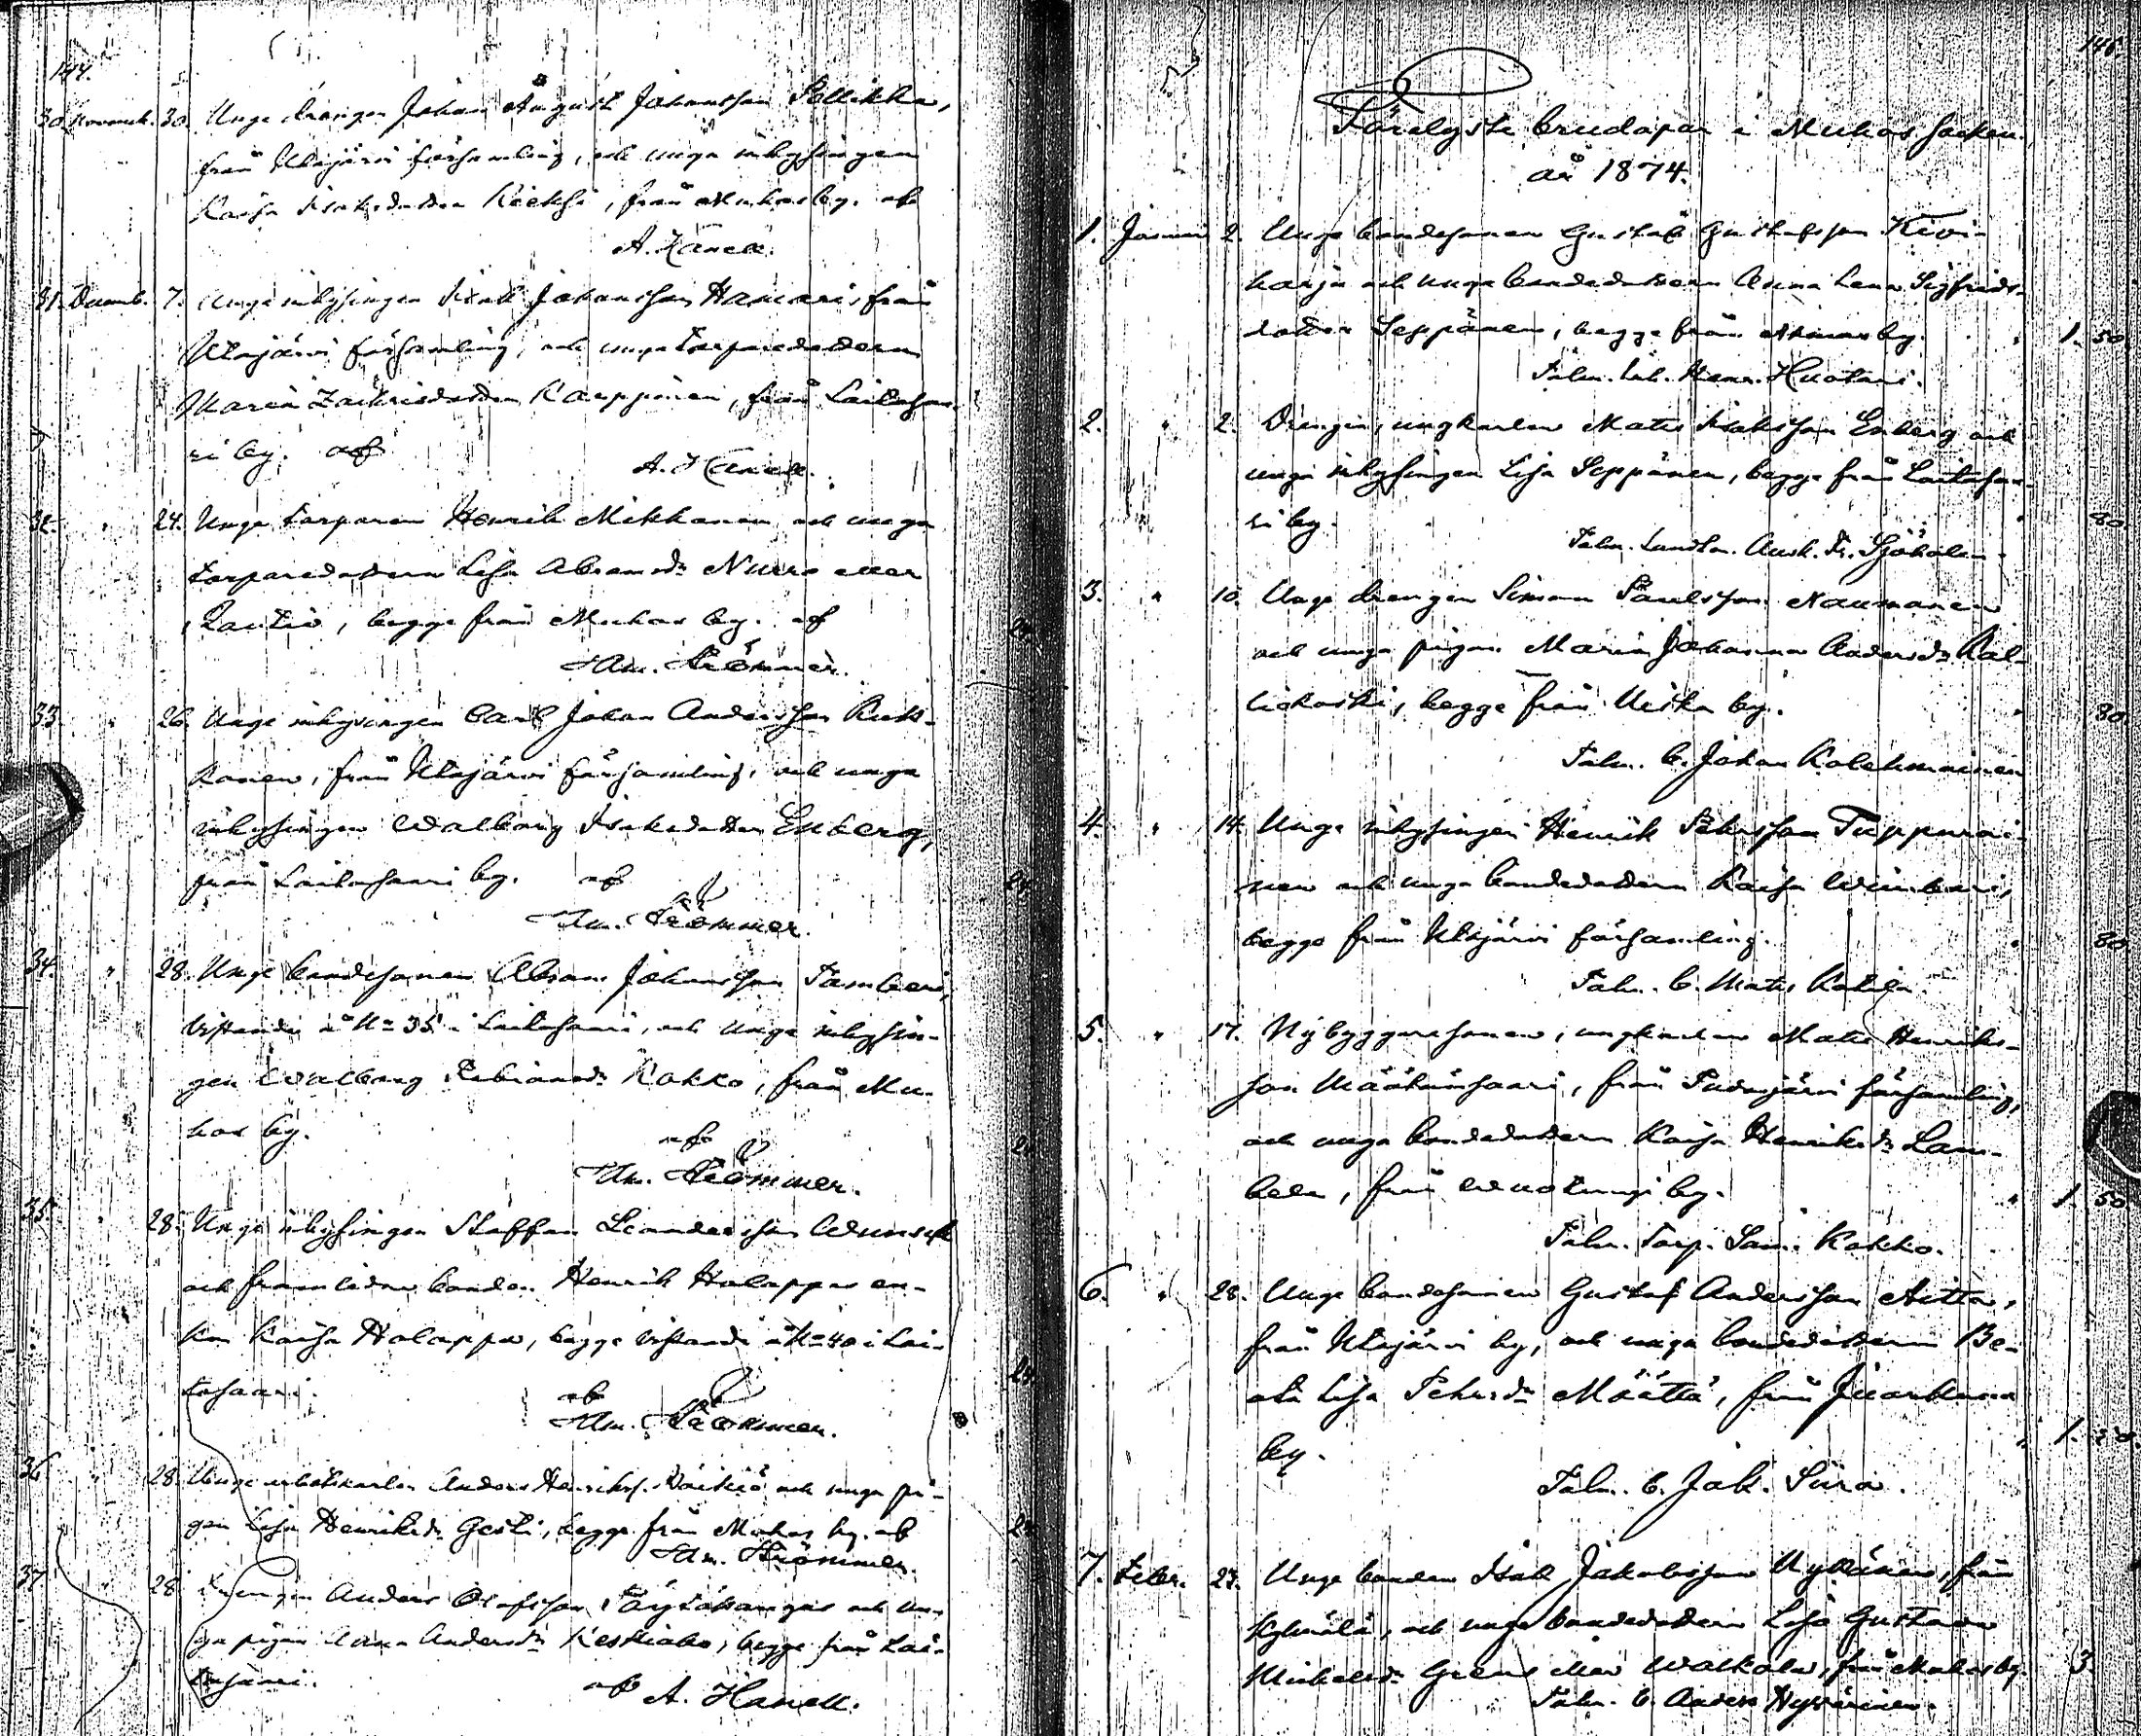 144.
30. Novemb. 30. Unge drängen Johan August Johansson Pellikka,
från Utajärvi församling, och unga inhysingen
Kaisa Isaksdotter Kiekki, från Muhos by. af
A. Hanell.
31. Decemb. 7. Unge inhysingen Isak Johansson Hamari, från
Utajärvi församling, och unga torparedottern
Maria Zachrisdotter Karppinen, från Laitasaa-
ri by. af
A. Hanell.
32. " 24. Unge torparen Henrik Mikkonen och unga
torparedottern Lisa Abramsdr Nurro eller
Rautio, begge från Muhos by. af 24
Am. Strömmer.
33. " 26. Unge inhysingen Carl Johan Andersson Rusk-
konen, från Utajärvi församling, och unga
inhysingen Walborg Isaksdotter Enberg,
från Laitasaari by. af 24
Am. Strömmer.
34. " 28. Unge bondesonen Abram Johansson Tamberi,
vistande å No 35 i Laitasaari, och unga inhysin-
gen Walborg Fabiansdr Kokko, från Mu-
hos by. af 24
Am. Strömmer.
35. " 28. Unge inhysingen Staffan Leandersson Wunsch
och framlidne bonden Henrik Holappas en-
ka Kaisa Holappa, begge vistande å No 40 i Lai-
tasaari. af 24
Am. Strömmer.
36. " 28. Unge arbetskarlen Anders Henriks. Väikiö och unga pi-
gan Lisa Henriksdr Gesti, begge från Muhos by. af 24
Am. Strömmer.
37. 28. Drängen Anders Olofsson Pöytäkangas och un-
ga pigan Anna Andersdr Keskiaho, begge från Lai-
tasaari. af A. Hanell.
145.
Förelyste brudapar i Muhos socken
år 1874.
1. Januari 2. Unge bondesonen Gustaf Gustafsson Kivi-
harju och unga bondedottern Anna Lena Sigfrids-
dotter Seppänen, begge från Muhos by. 1. 50
Talm. Henr. Huotari.
2. " 2. Drängen, ungkarlen Mats Isaksson Enberg och
unga inhysingen Lisa Seppänen, begge från Laitasaa-
ri by. 80
Talm. Fr. Sjöholm.
3. " 10. Unge drängen Simon Paulsson Naumanen
och unga pigan Maria Johanna Andersdr Kal-
liokoski, begge från Kiska by. 80
Talm. b. Johan Kolehmainen
4. " 14. Unge inhysingen Henrik Pehrsson Tuppurai-
nen och unga bondedottern Kaisa
begge från Utajärvi församling. 80
Talm. b. Mats Kotila.
5. " 17. Nybyggaresonen, ungkarlen Mats Henriks-
son Määtänsaari, från Pudasjärvi församling,
och unga bondedottern Kaisa Henriksdr Lam-
bela, från by. 1. 50
Talm. Torp. Sam. Kokko.
6. " 28. Unge bondesonen Gustaf Andersson Aitta,
från Utajärvi by, och unga bondedottern Be-
ata Lisa Pehrsdr Määttä, från Juorkuna
by. 1. 20.
Talm. b. Jak. Sura.
7. Febr. 27. Unge bonden Isak Jakobsson Nykänen, från
Kylmälä, och unga bondedottern Lisa Gustava
Michelsdr Grens eller Walkola, från Muhos by. 3.
Talm. b. Anders Hyvärinen.